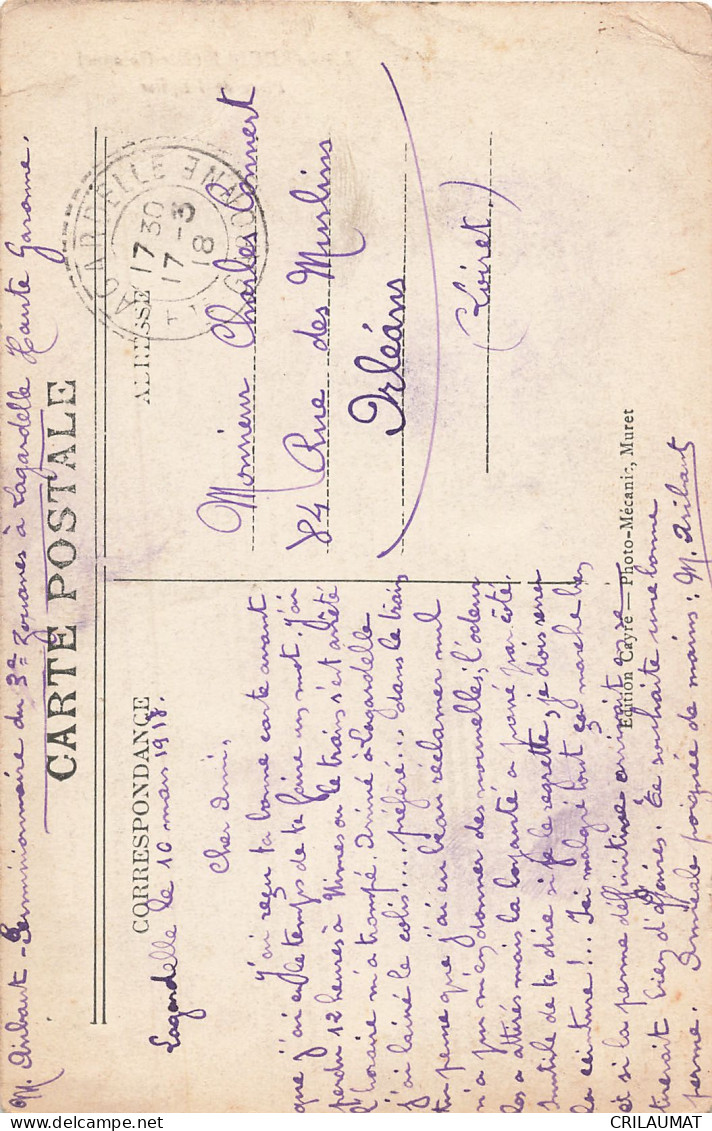 M. Aribaut - Permissionnaire du 3e Zouaves à Lagardelle Haute Garonne.
CARTE POSTALE
CORRESPONDANCE
ADRESSE
LAGARDELLE
HTE GARONNE
17 30
17 - 3
18
Lagardelle le 10 mars 1918.
Cher Ami,
J'ai reçu ta bonne carte avant
que j'ai eu le temps de te faire un mot. J'ai
perdu 12 heures à Nimes où le train s'est arrêté
l'horaire m'a trompé. Arrivé à Lagardelle
j'ai laissé le colis.... préféré... dans le train
tu pense que j'ai eu beau réclamer nul
n'a pu m'en donner des nouvelles, l'odeur
les a attirés mais la loyauté a passé par côté.
Inutile de te dire si je le regrette, je dois serrer
la ceinture !.. Ici malgré tout ça marche bien
et si la perme définitive arrivait on se
tirerait bien d'affaires. Te souhaite une bonne
perme. Amicale poignée de mains: M. Aribaut
Monsieur Charles Convert
84 Rue des Murlins
Orléans
(Loiret)
Edition Cayre — Photo-Mécanic, Muret
CRILAUMAT